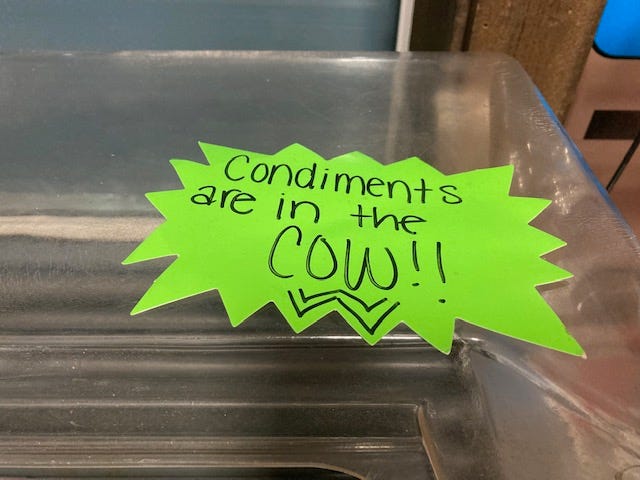 Condiments
are in the
COW!!